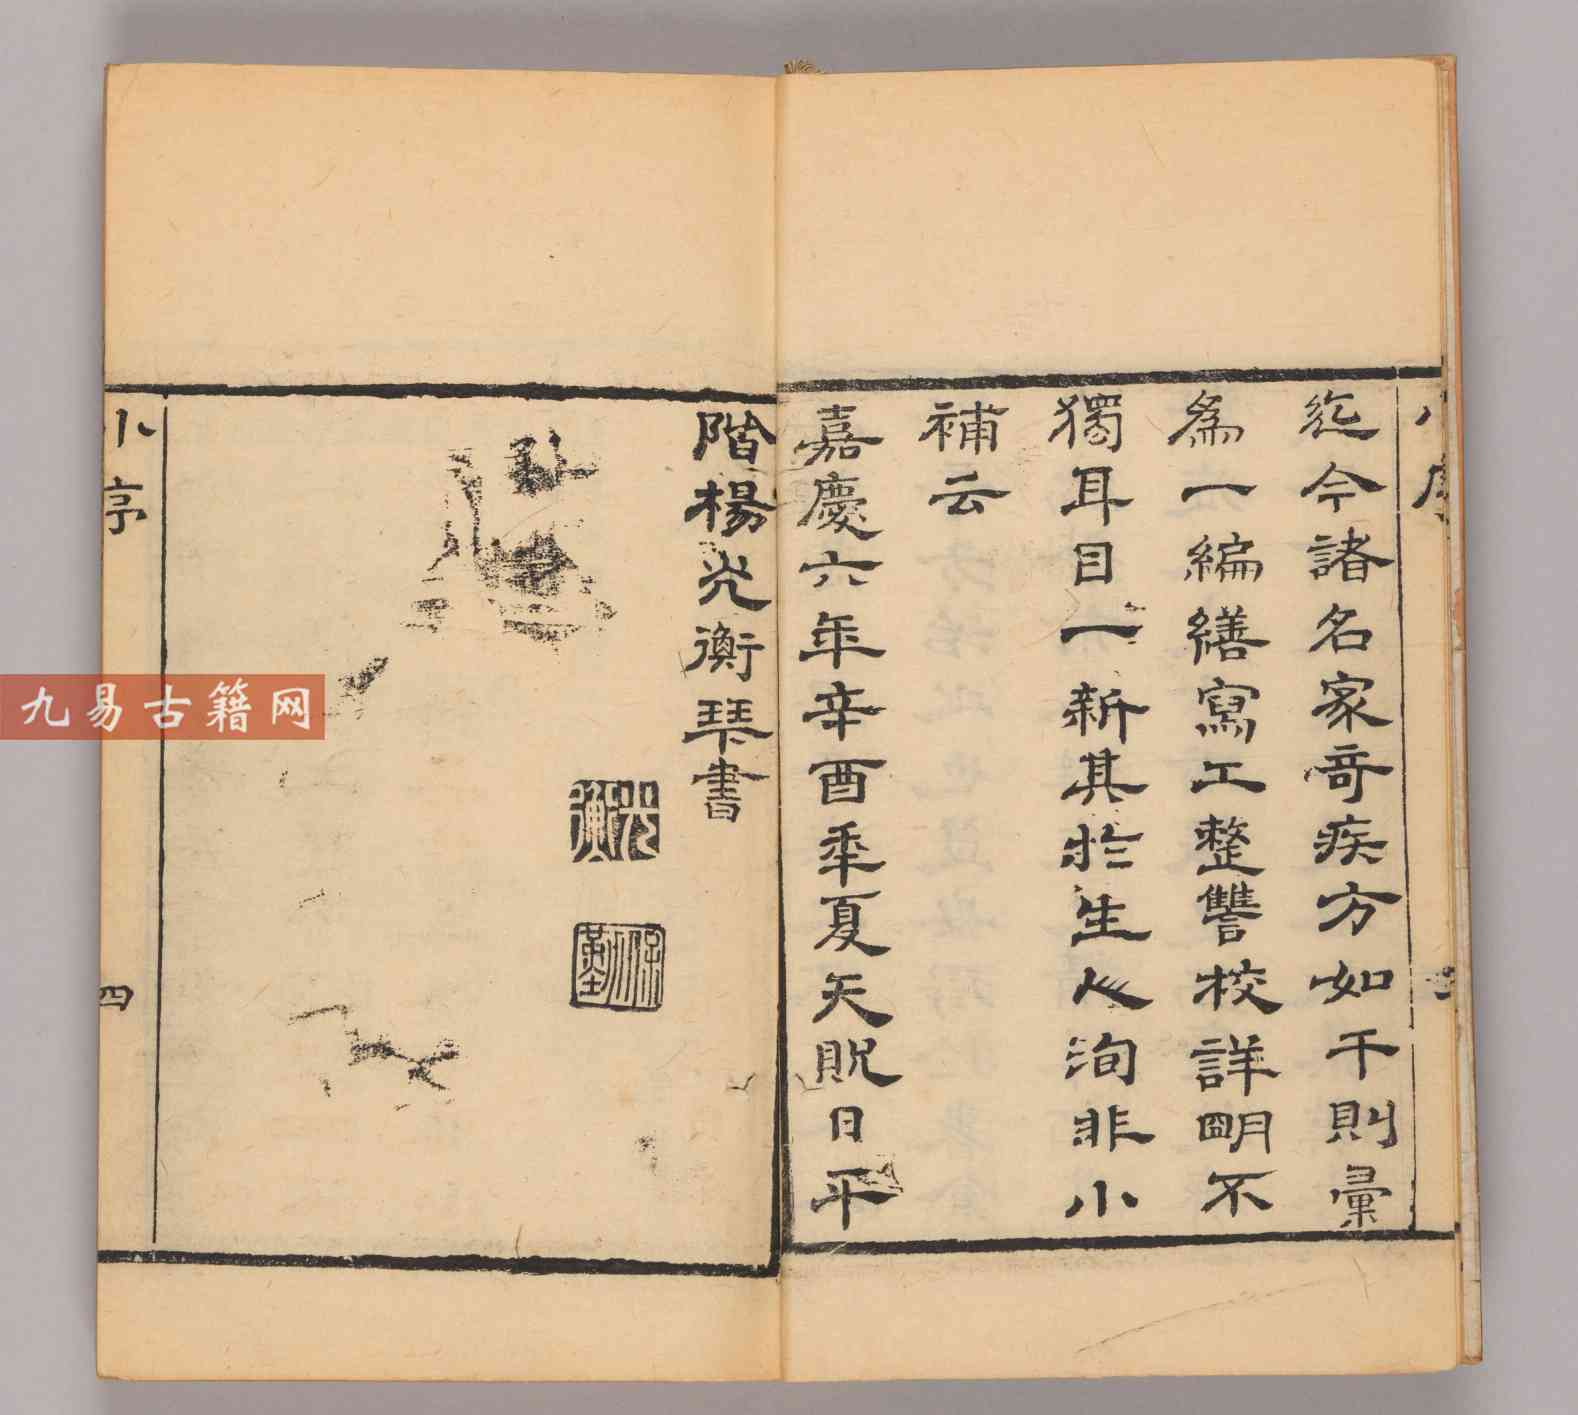 迄今諸名家奇疾方如干則彙
為一編繕寫工整讐校詳明不
獨耳目一新其於生人洵非小
補云
嘉慶六年辛酉秊夏天貺日平
階楊光衡琴書
光衡
小序
四
九易古籍网